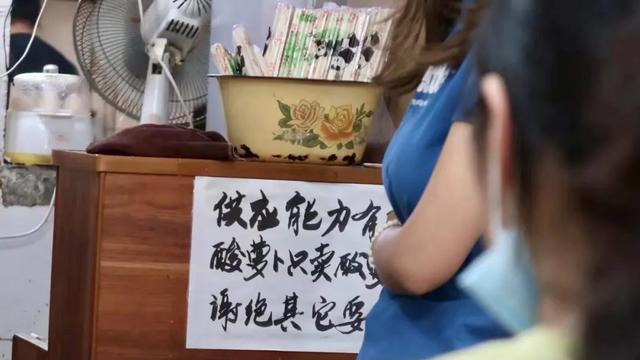 供应能力有
酸萝卜只卖酸
谢绝其它要